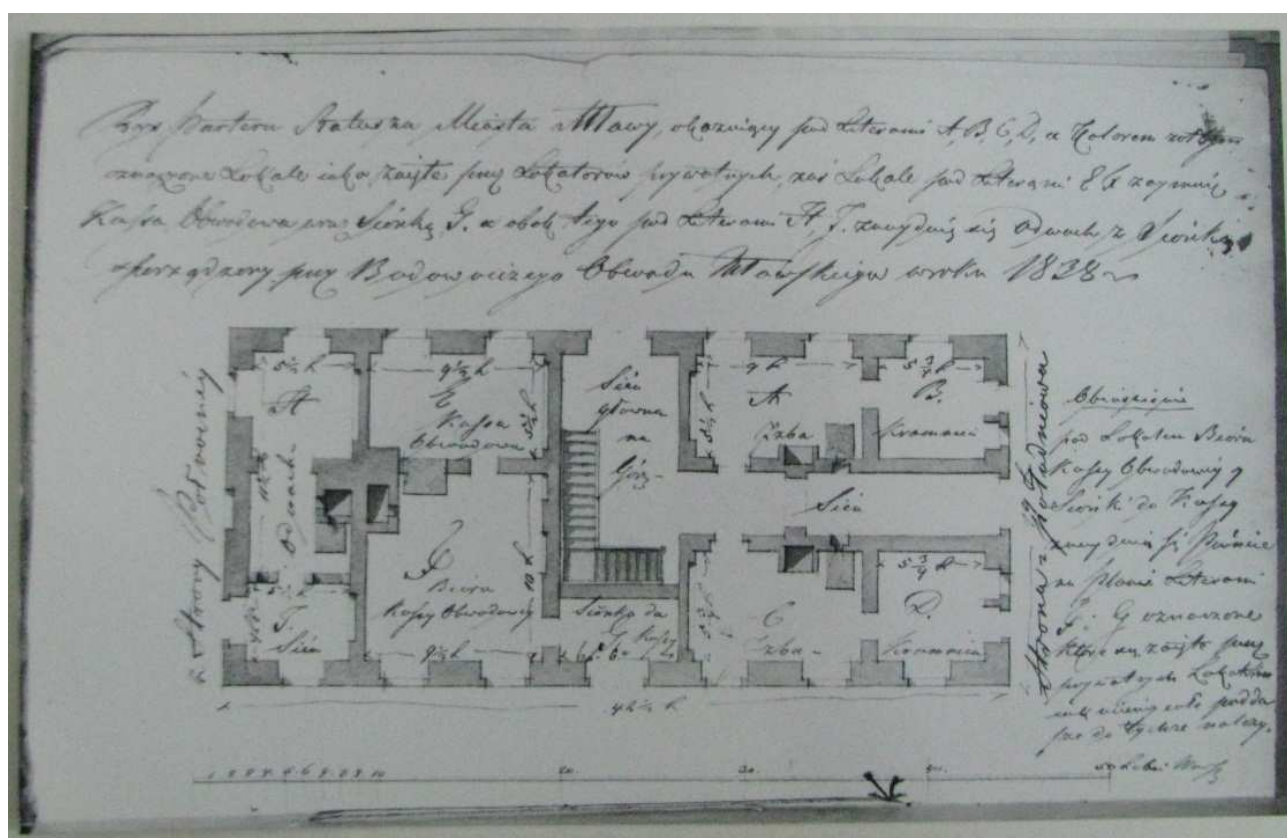 Rys Parteru Ratusza Miasta Mławy, okazuiący pod Literami A, B, C, D, a Kolorem żółtym
oznaczone Lokale iako zaięte przez Lokatorów prywatnych, zaś Lokale pod Literami E & zaymuie
Kassa Obwodowa oraz Sionkę G. a obok tego pod Literami H, J. znayduią się Odwach z Sionką
sporządzony przez Budowniczego Obwodu Mławskiego w roku 1838
ze Strony Północney
Strona z południowa
5 ½ ł
H
Odwach
J.
Sień
9 ½ ł
E
Kassa
Obwodowa
5 ½ ł
Bióra
Kassy Obwodowey
10 ł
9 ½ ł
Sień
główna
na
Górę
Sionka do
G. Kassy
9 ł
A
Izba
5 ½ ł
5 ¾ ł
B.
Kramnica
Sień
C
Izba
5 ¾ ł
D.
Kramnica
42 ½ ł
Obiaśnienie
pod Lokalem Bióra
Kassy Obwodowey y
Sionki do Kassy
znayduią się Piwnice
na planie Literami
F. G oznaczone
które są zaięte przez
prywatnych Lokatorów
do tychże należy.
10
20.
30
40.
50 Łokci